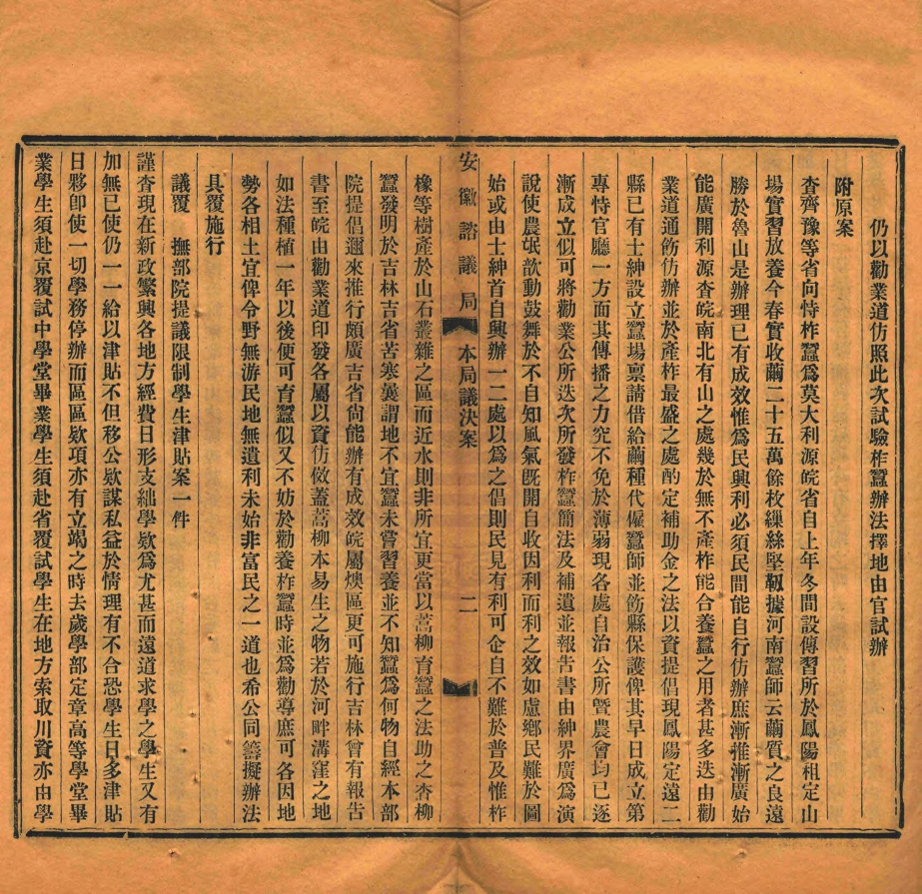 仍以勸業道仿照此次試驗柞蠶辦法擇地由官試辦
附原案
查齊豫等省向恃柞蠶爲莫大利源皖省自上年冬間設傳習所於鳳陽租定山
場實習放養今春實收繭二十五萬餘枚繅絲堅韌據河南蠶師云繭質之良遠
勝於魯山是辦理已有成效惟爲民興利必須民間能自行仿辦庶漸推漸廣始
能廣開利源查皖南北有山之處幾於無不產柞能合養蠶之用者甚多迭由勸
業道通飭仿辦並於產柞最盛之處酌定補助金之法以資提倡現鳳陽定遠二
縣已有士紳設立蠶場稟請借給繭種代僱蠶師並飭縣保護俾其早日成立第
專恃官廳一方面其傳播之力究不免於薄弱現各處自治公所暨農會均已逐
漸成立似可將勸業公所迭次所發柞蠶簡法及補遺並報告書由紳界廣爲演
說使農氓歆動鼓舞於不自知風氣旣開自收因利而利之效如慮鄉民難於圖
始或由士紳首自興辦一二處以爲之倡則民見有利可企自不難於普及惟柞
安徽諮議局 本局議決案 二
橡等樹產於山石叢雜之區而近水則非所宜更當以蒿柳育蠶之法助之查柳
蠶發明於吉林吉省苦寒羣謂地不宜蠶未嘗習養並不知蠶爲何物自經本部
院提倡邇來推行頗廣吉省尙能辦有成效皖屬燠區更可施行吉林曾有報告
書至皖由勸業道印發各屬以資仿傚蓋蒿柳本易生之物若於河畔溝窪之地
如法種植一年以後便可育蠶似又不妨於勸養柞蠶時並爲勸導庶可各因地
勢各相土宜俾令野無游民地無遺利未始非富民之一道也希公同籌擬辦法
具覆施行
議覆 撫部院提議限制學生津貼案一件
謹查現在新政繁興各地方經費日形支絀學欵爲尤甚而遠道求學之學生又有
加無已使仍一一給以津貼不但移公欵謀私益於情理有不合恐學生日多津貼
日夥卽使一切學務停辦而區區欵項亦有立竭之時去歲學部定章高等學堂畢
業學生須赴京覆試中學堂畢業學生須赴省覆試學生在地方索取川資亦由學